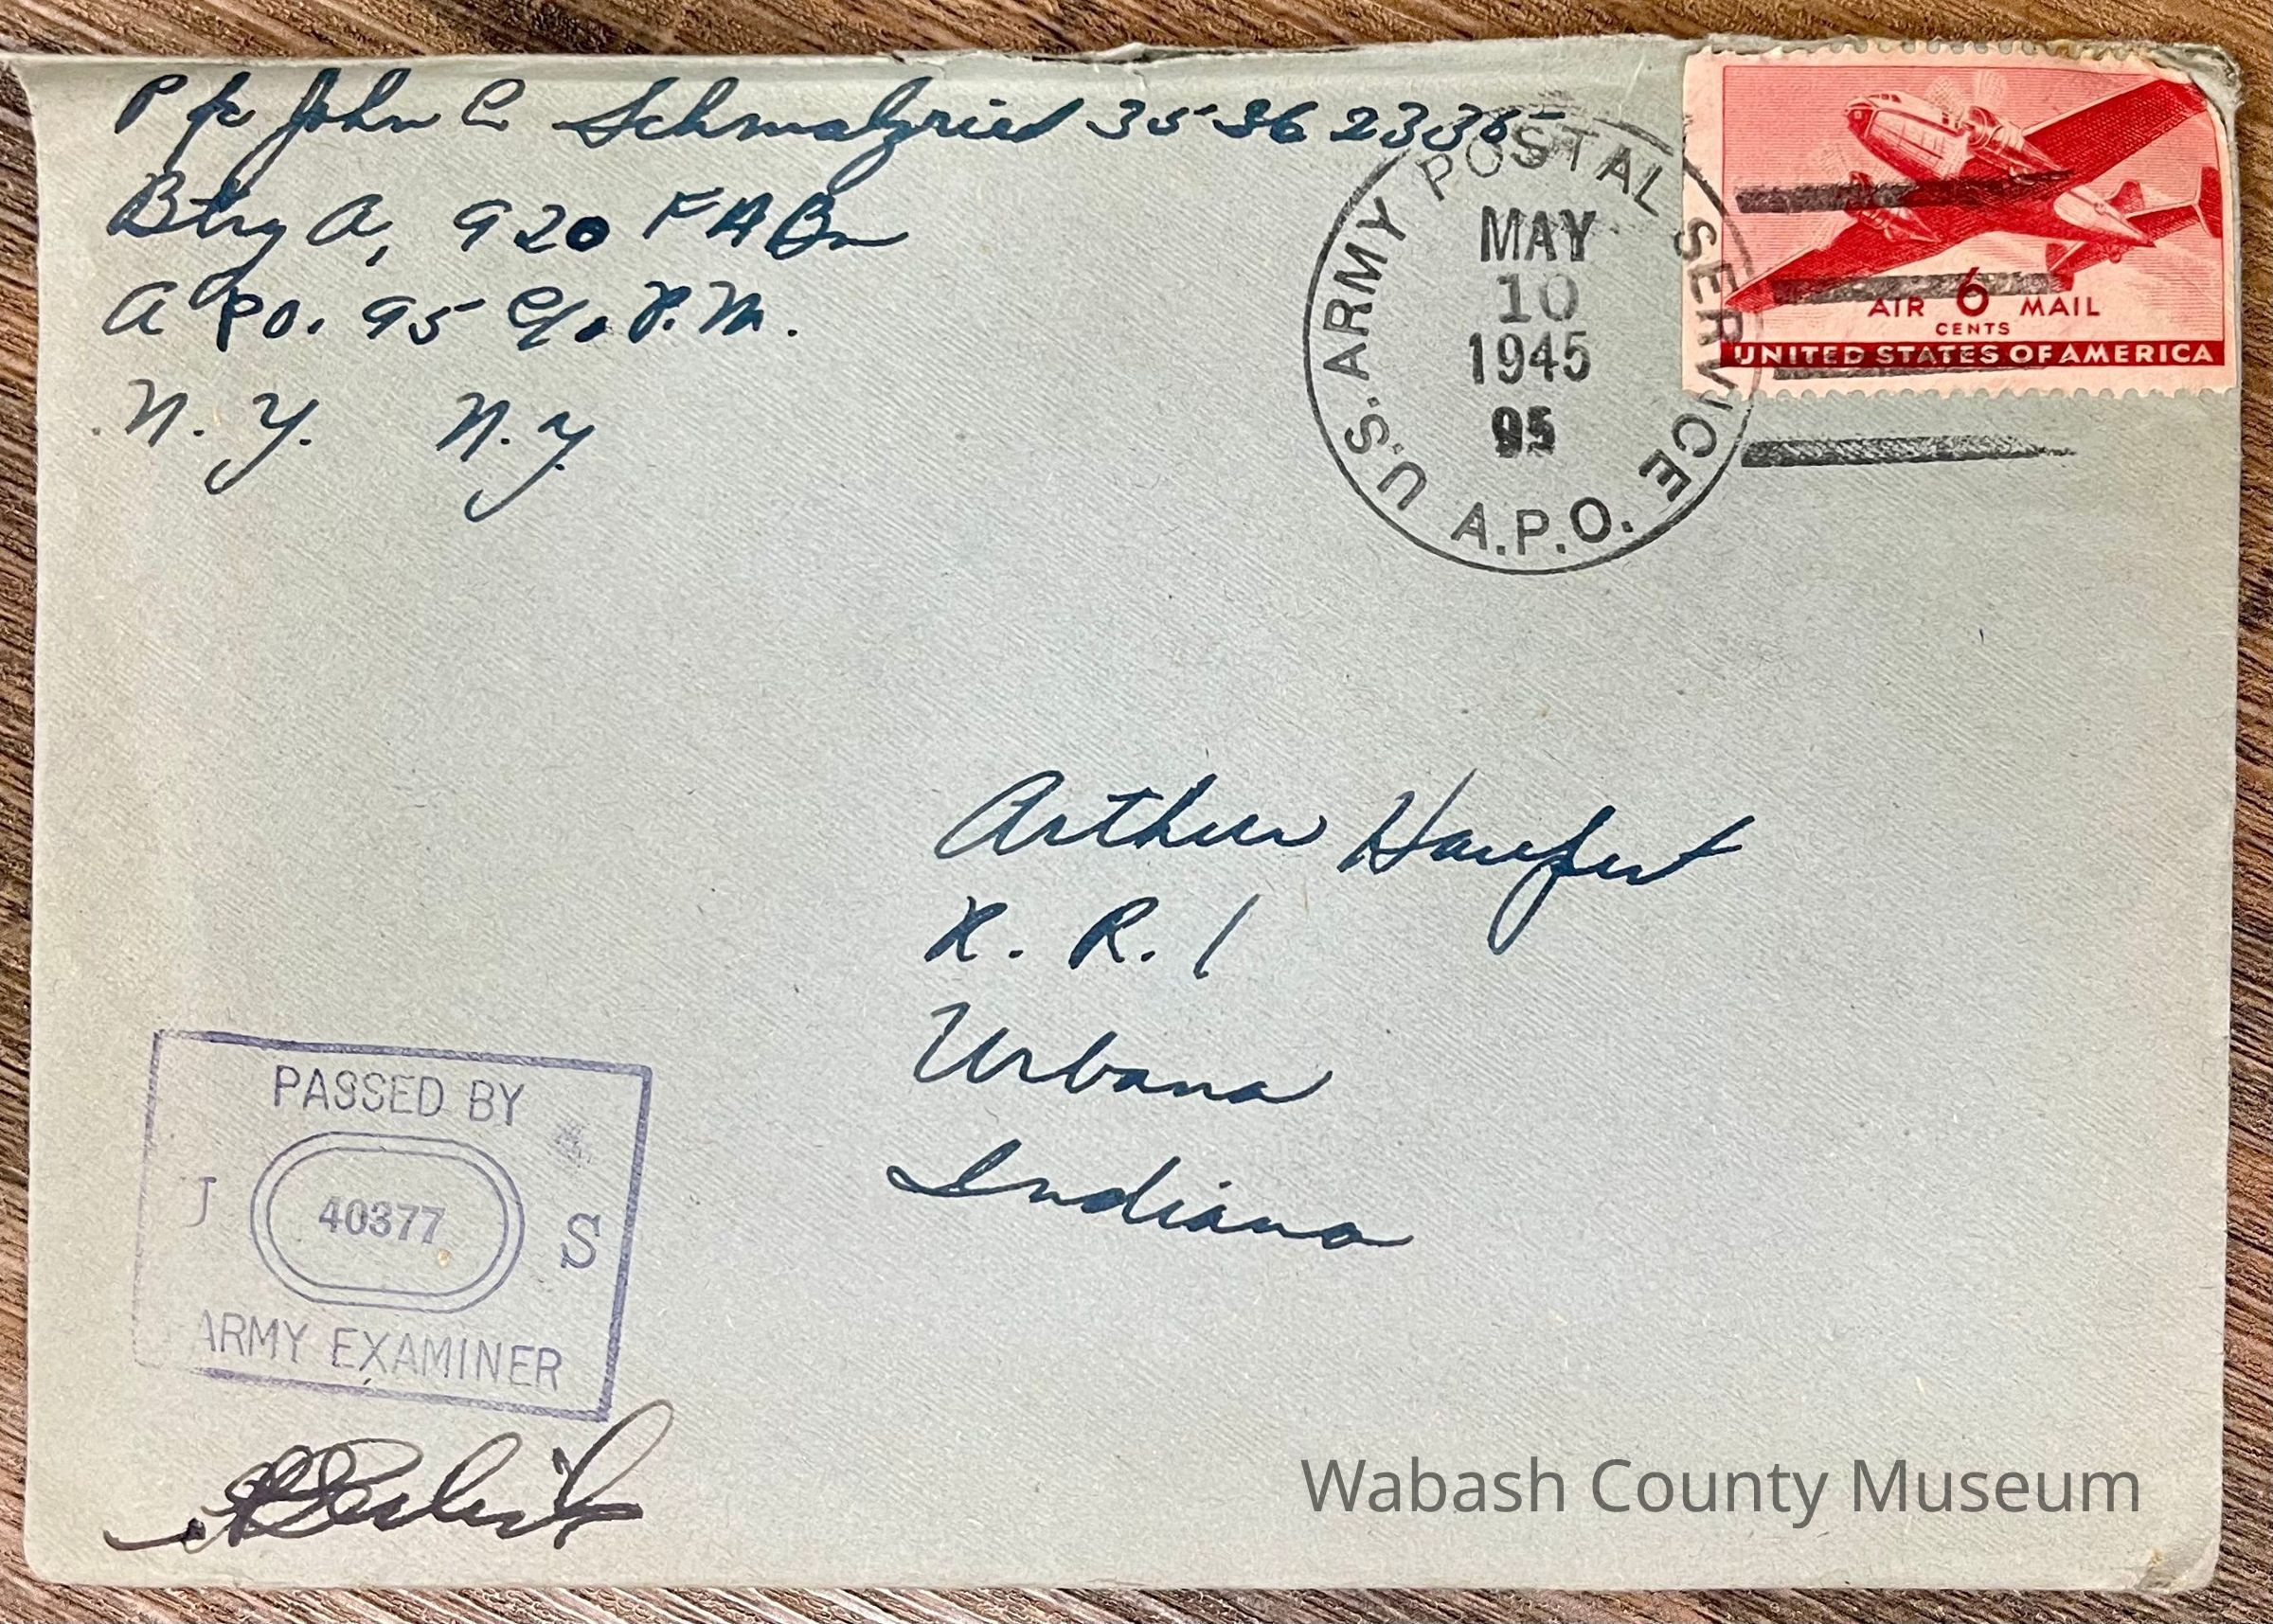 Pfc John C Schmalzried 35362335
Btry A, 920 FA Bn
APO. 95 c/o P.M.
N. Y. N.Y.
U.S. ARMY POSTAL SERVICE
MAY
10
1945
95
A.P.O.
AIR 6 MAIL
CENTS
UNITED STATES OF AMERICA
Arthur Haupert
R. R. 1
Urbana
Indiana
PASSED BY
U 40377 S
ARMY EXAMINER
Wabash County Museum